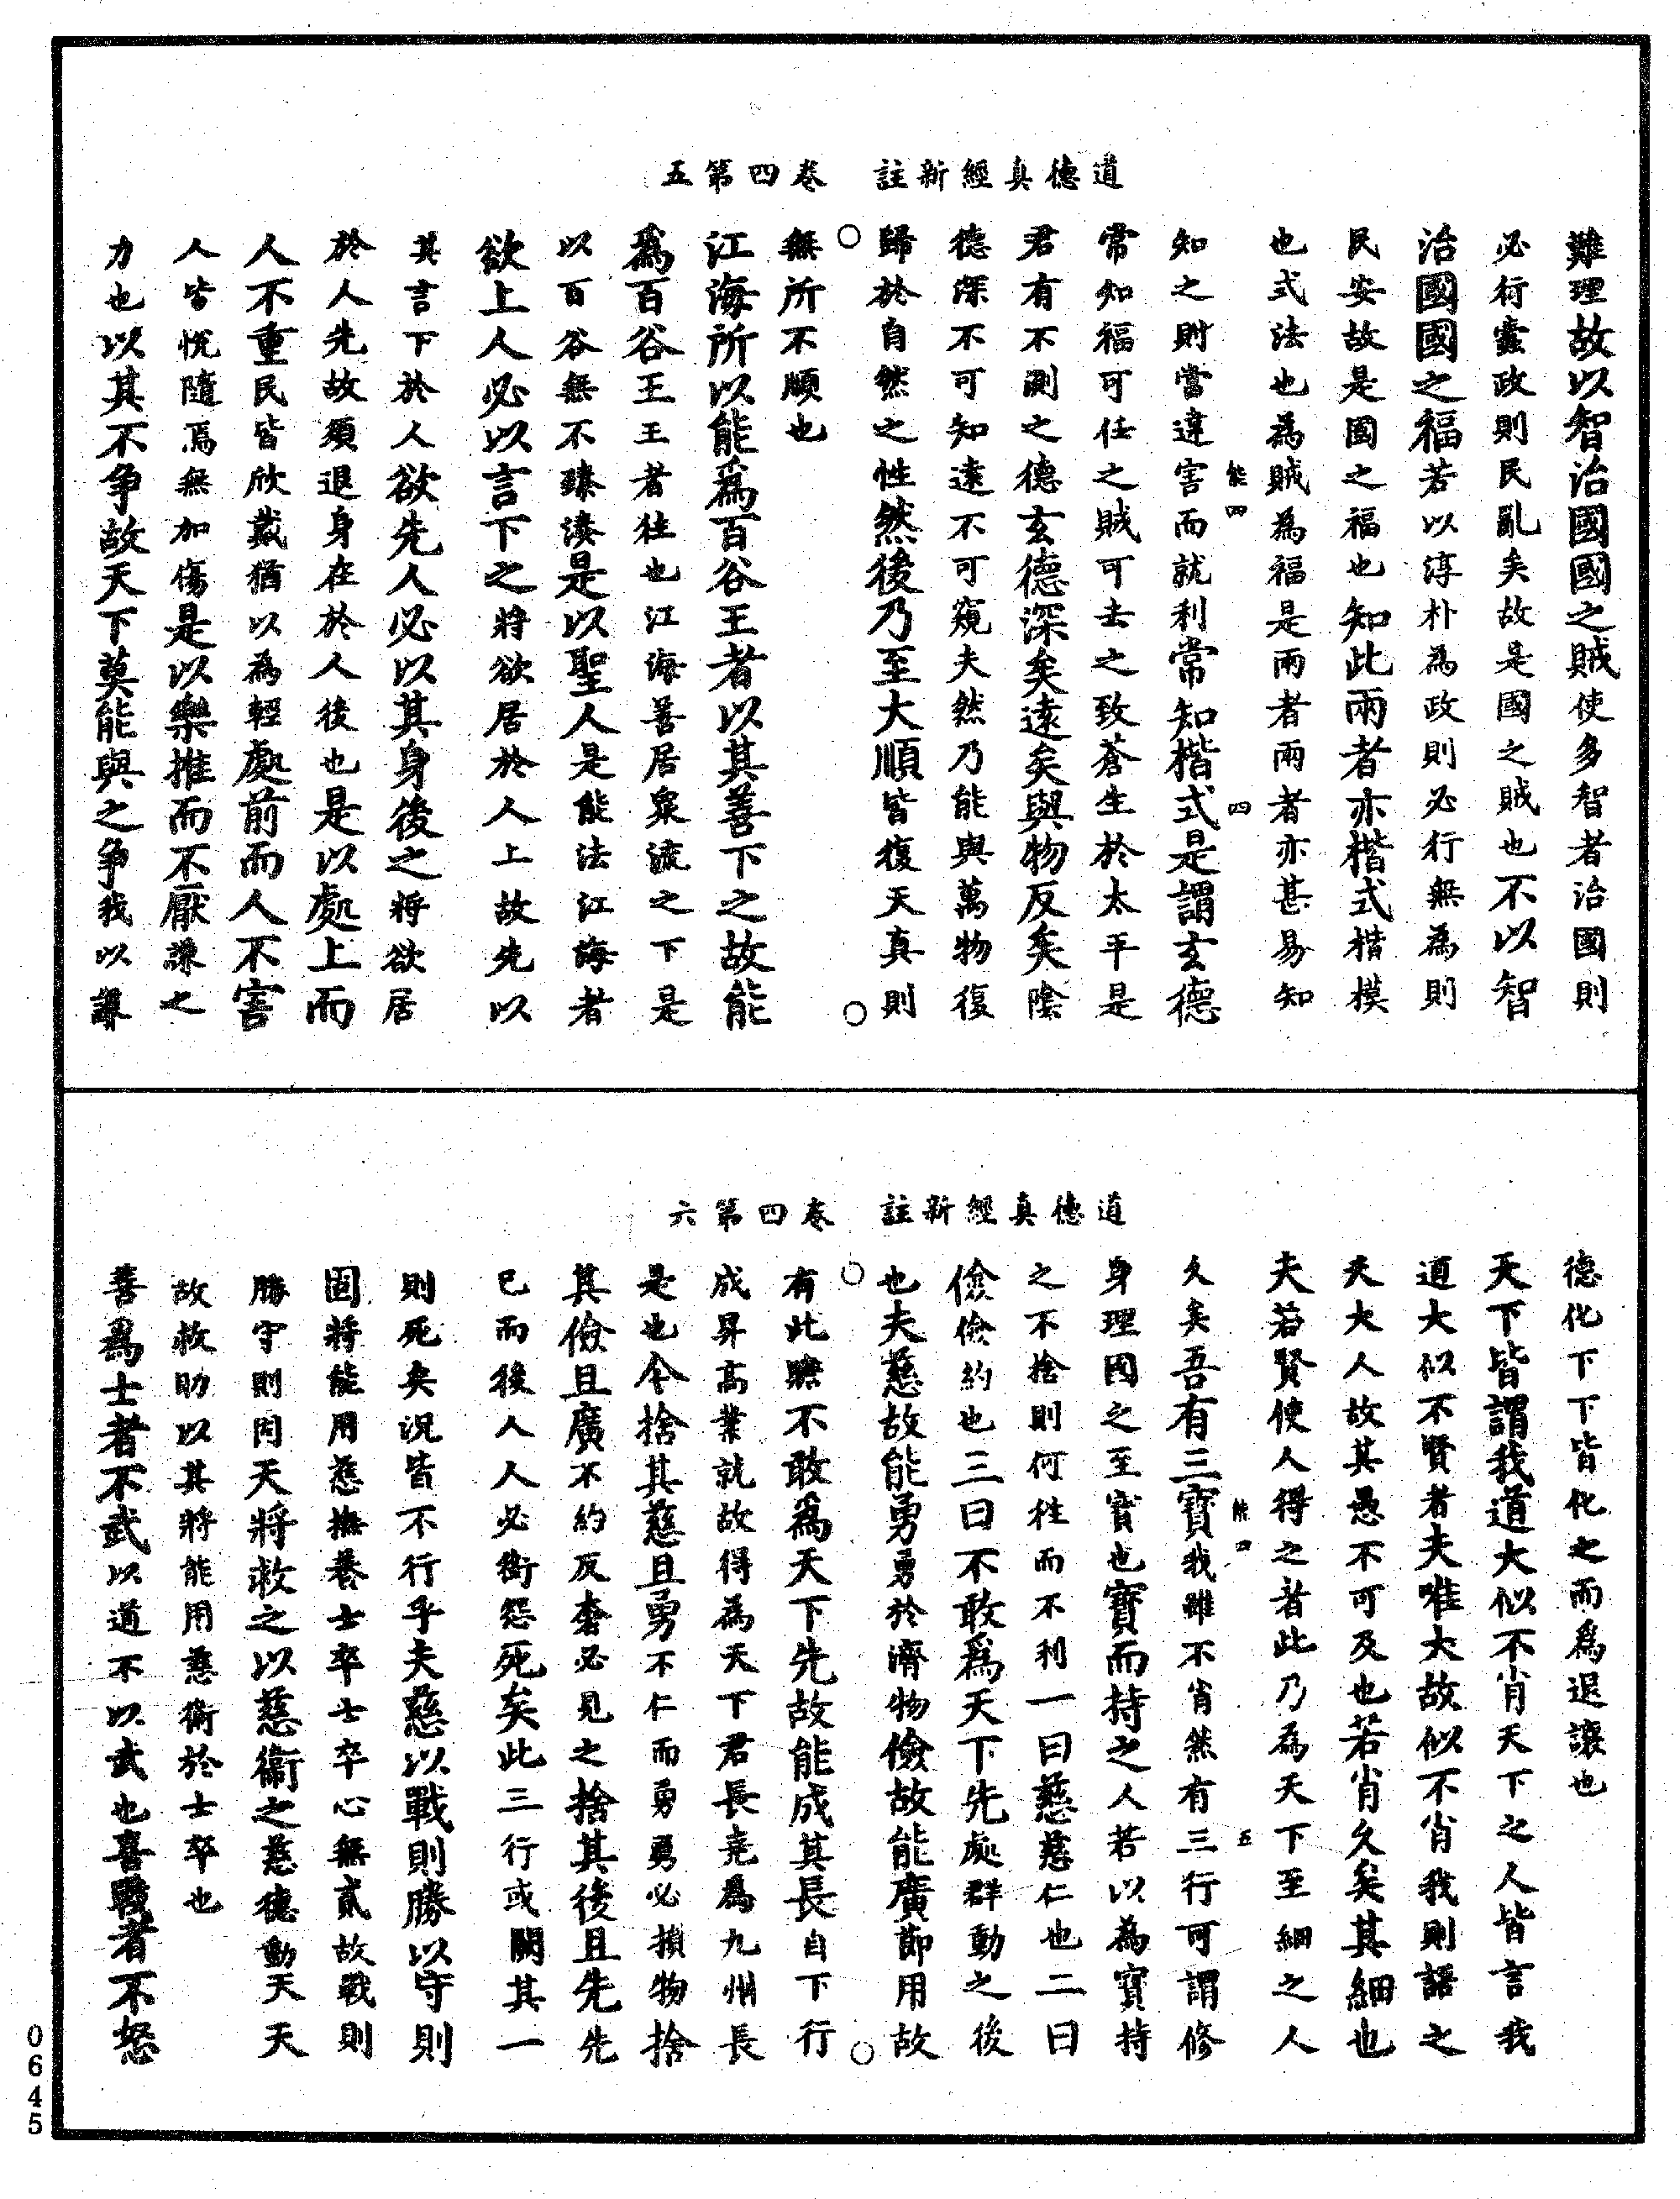 道德真經新註　卷四第五
難理故以智治國國之賊使多智者治國則
必行蠹政則民亂矣故是國之賊也不以智
治國國之福若以淳朴為政則必行無為則
民安故是國之福也知此兩者亦楷式楷模
也式法也為賊為福是兩者兩者亦甚易知
能四　四
知之則當違害而就利常知楷式是謂玄德
常知福可任之賊可去之致蒼生於太平是
君有不測之德玄德深矣遠矣與物反矣陰
德深不可知遠不可窺夫然乃能與萬物復
歸於自然之性然後乃至大順皆復天真則
無所不順也
江海所以能爲百谷王者以其善下之故能
爲百谷王王者往也江海善居衆流之下是
以百谷無不臻湊是以聖人是能法江海者
欲上人必以言下之將欲居於人上故先以
其言下於人欲先人必以其身後之將欲居
於人先故須退身在於人後也是以處上而
人不重民皆欣戴猶以為輕處前而人不害
人皆悅隨焉無加傷是以樂推而不厭謙之
力也以其不爭故天下莫能與之爭我以謙
道德真經新註　卷四第六
德化下下皆化之而爲退讓也
天下皆謂我道大似不肖天下之人皆言我
道大似不賢者夫唯大故似不肖我則語之
夫大人故其愚不可及也若肖久矣其細也
夫若賢使人得之者此乃為天下至細之人
能四　五
久矣吾有三寶我雖不肖然有三行可謂修
身理國之至寶也寶而持之人若以為寶持
之不捨則何往而不利一曰慈慈仁也二曰
儉儉約也三曰不敢爲天下先處群動之後
也夫慈故能勇勇於濟物儉故能廣節用故
有此贍不敢爲天下先故能成其長自下行
成昇高業就故得為天下君長堯爲九州長
是也今捨其慈且勇不仁而勇勇必損物捨
其儉且廣不約反奢必見之捨其後且先先
已而後人人必銜怨死矣此三行或闕其一
則死矣況皆不行乎夫慈以戰則勝以守則
固將能用慈撫養士卒士卒心無貳故戰則
勝守則固天將救之以慈衞之慈德動天天
故救助以其將能用慈衞於士卒也
善爲士者不武以道不以武也喜戰者不怒
0645